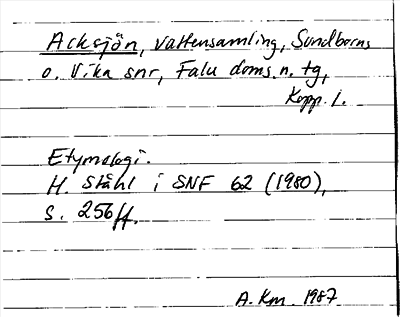 Acksjön, vattensamling, Sundborns
o. Vika snr, Falu doms. n. tg,
Kopp. l.
Etymologi.
H. Ståhl i SNF 62 (1980),
s. 256 ff.
A. Km. 1987